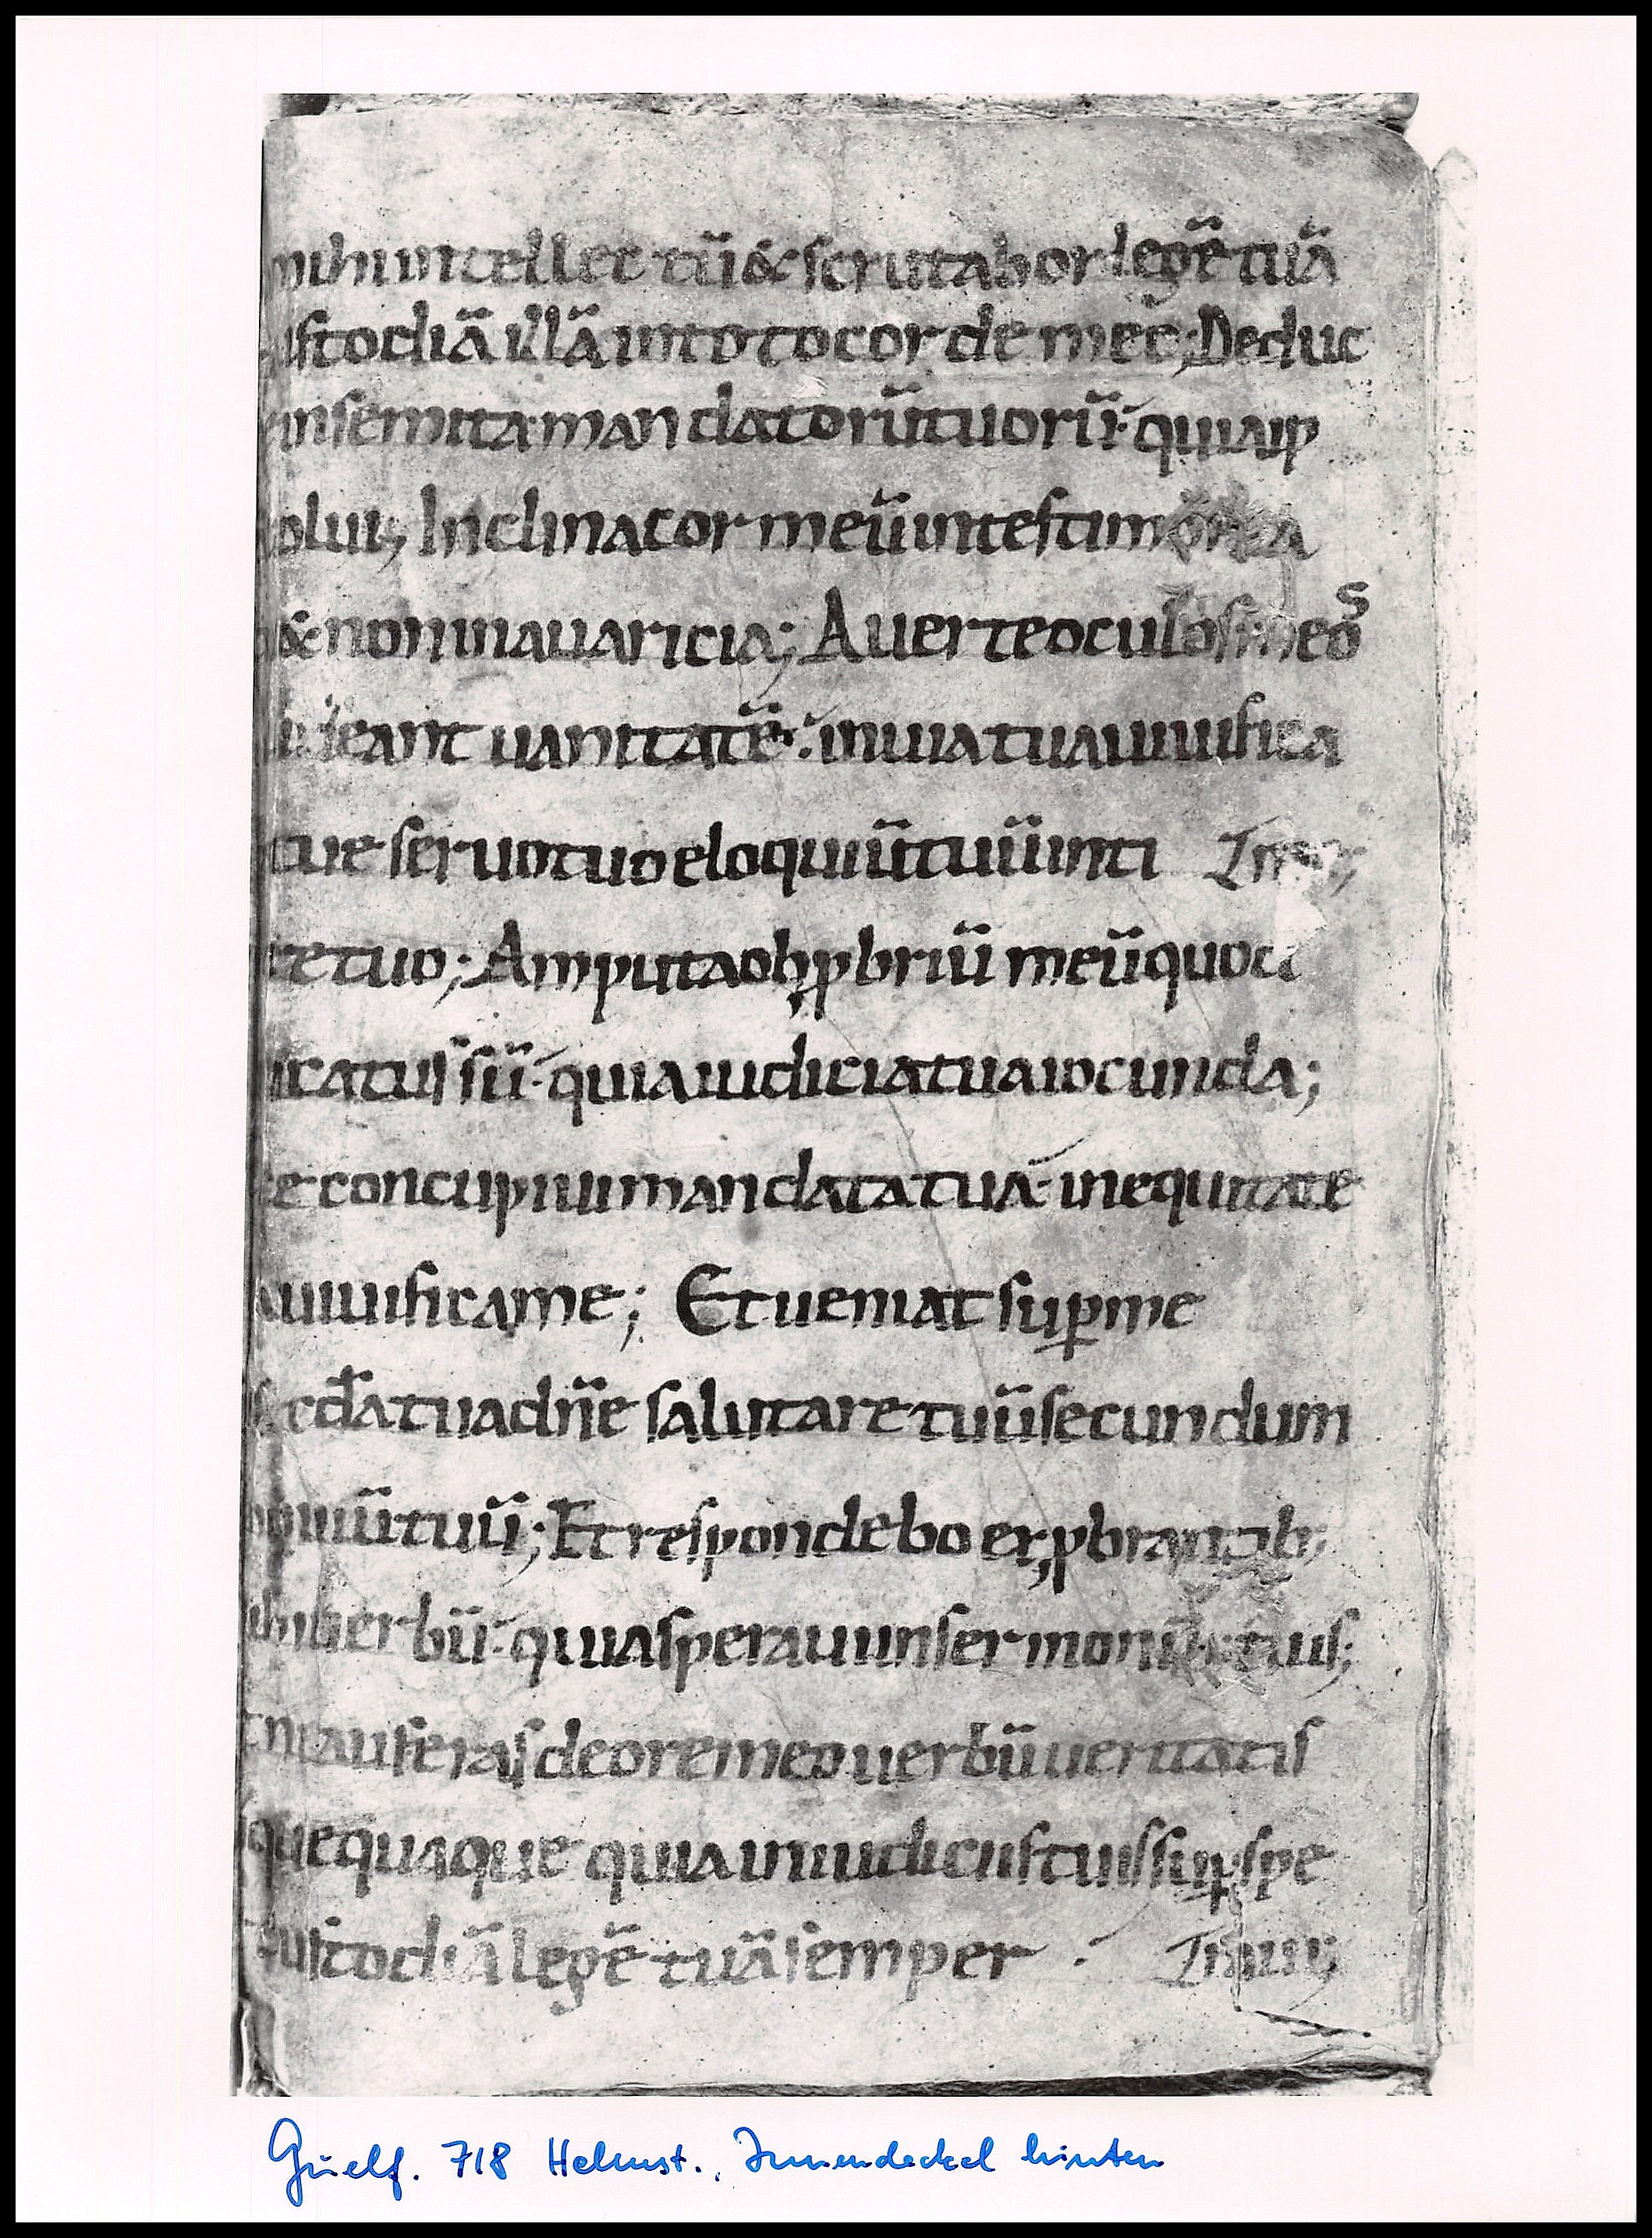 mihi intellectū & scrutabor legē tuā
ustodiā illā in toto corde meo; Deduc
in semita mandatorū tuorū quia ip
olui; Inclina cor meū in testimonia
& non in auaricia; Auerte oculos meos
deant uanitatē in uia tua uiuifica
tue seruo tuo eloquiū tuū in ti
re tuo; Amputa obꝓbriū meū quod
icatus sū quia iudicia tua iocunda;
e concupiui mandata tua in equitate
a uiuifica me; Et ueniat suꝑ me
cđa tua dn̄e salutare tuū secundum
quiū tuū; Et respondebo exꝓbrantib;
ihi uerbū quia speraui in sermonib; tuis;
t ne auferas de ore meo uerbū ueritatis
quequaque quia in iudiciis tuis suꝑspe
custodiā legē tuā semper
Guelf. 718 Helmst., Innendeckel hinten